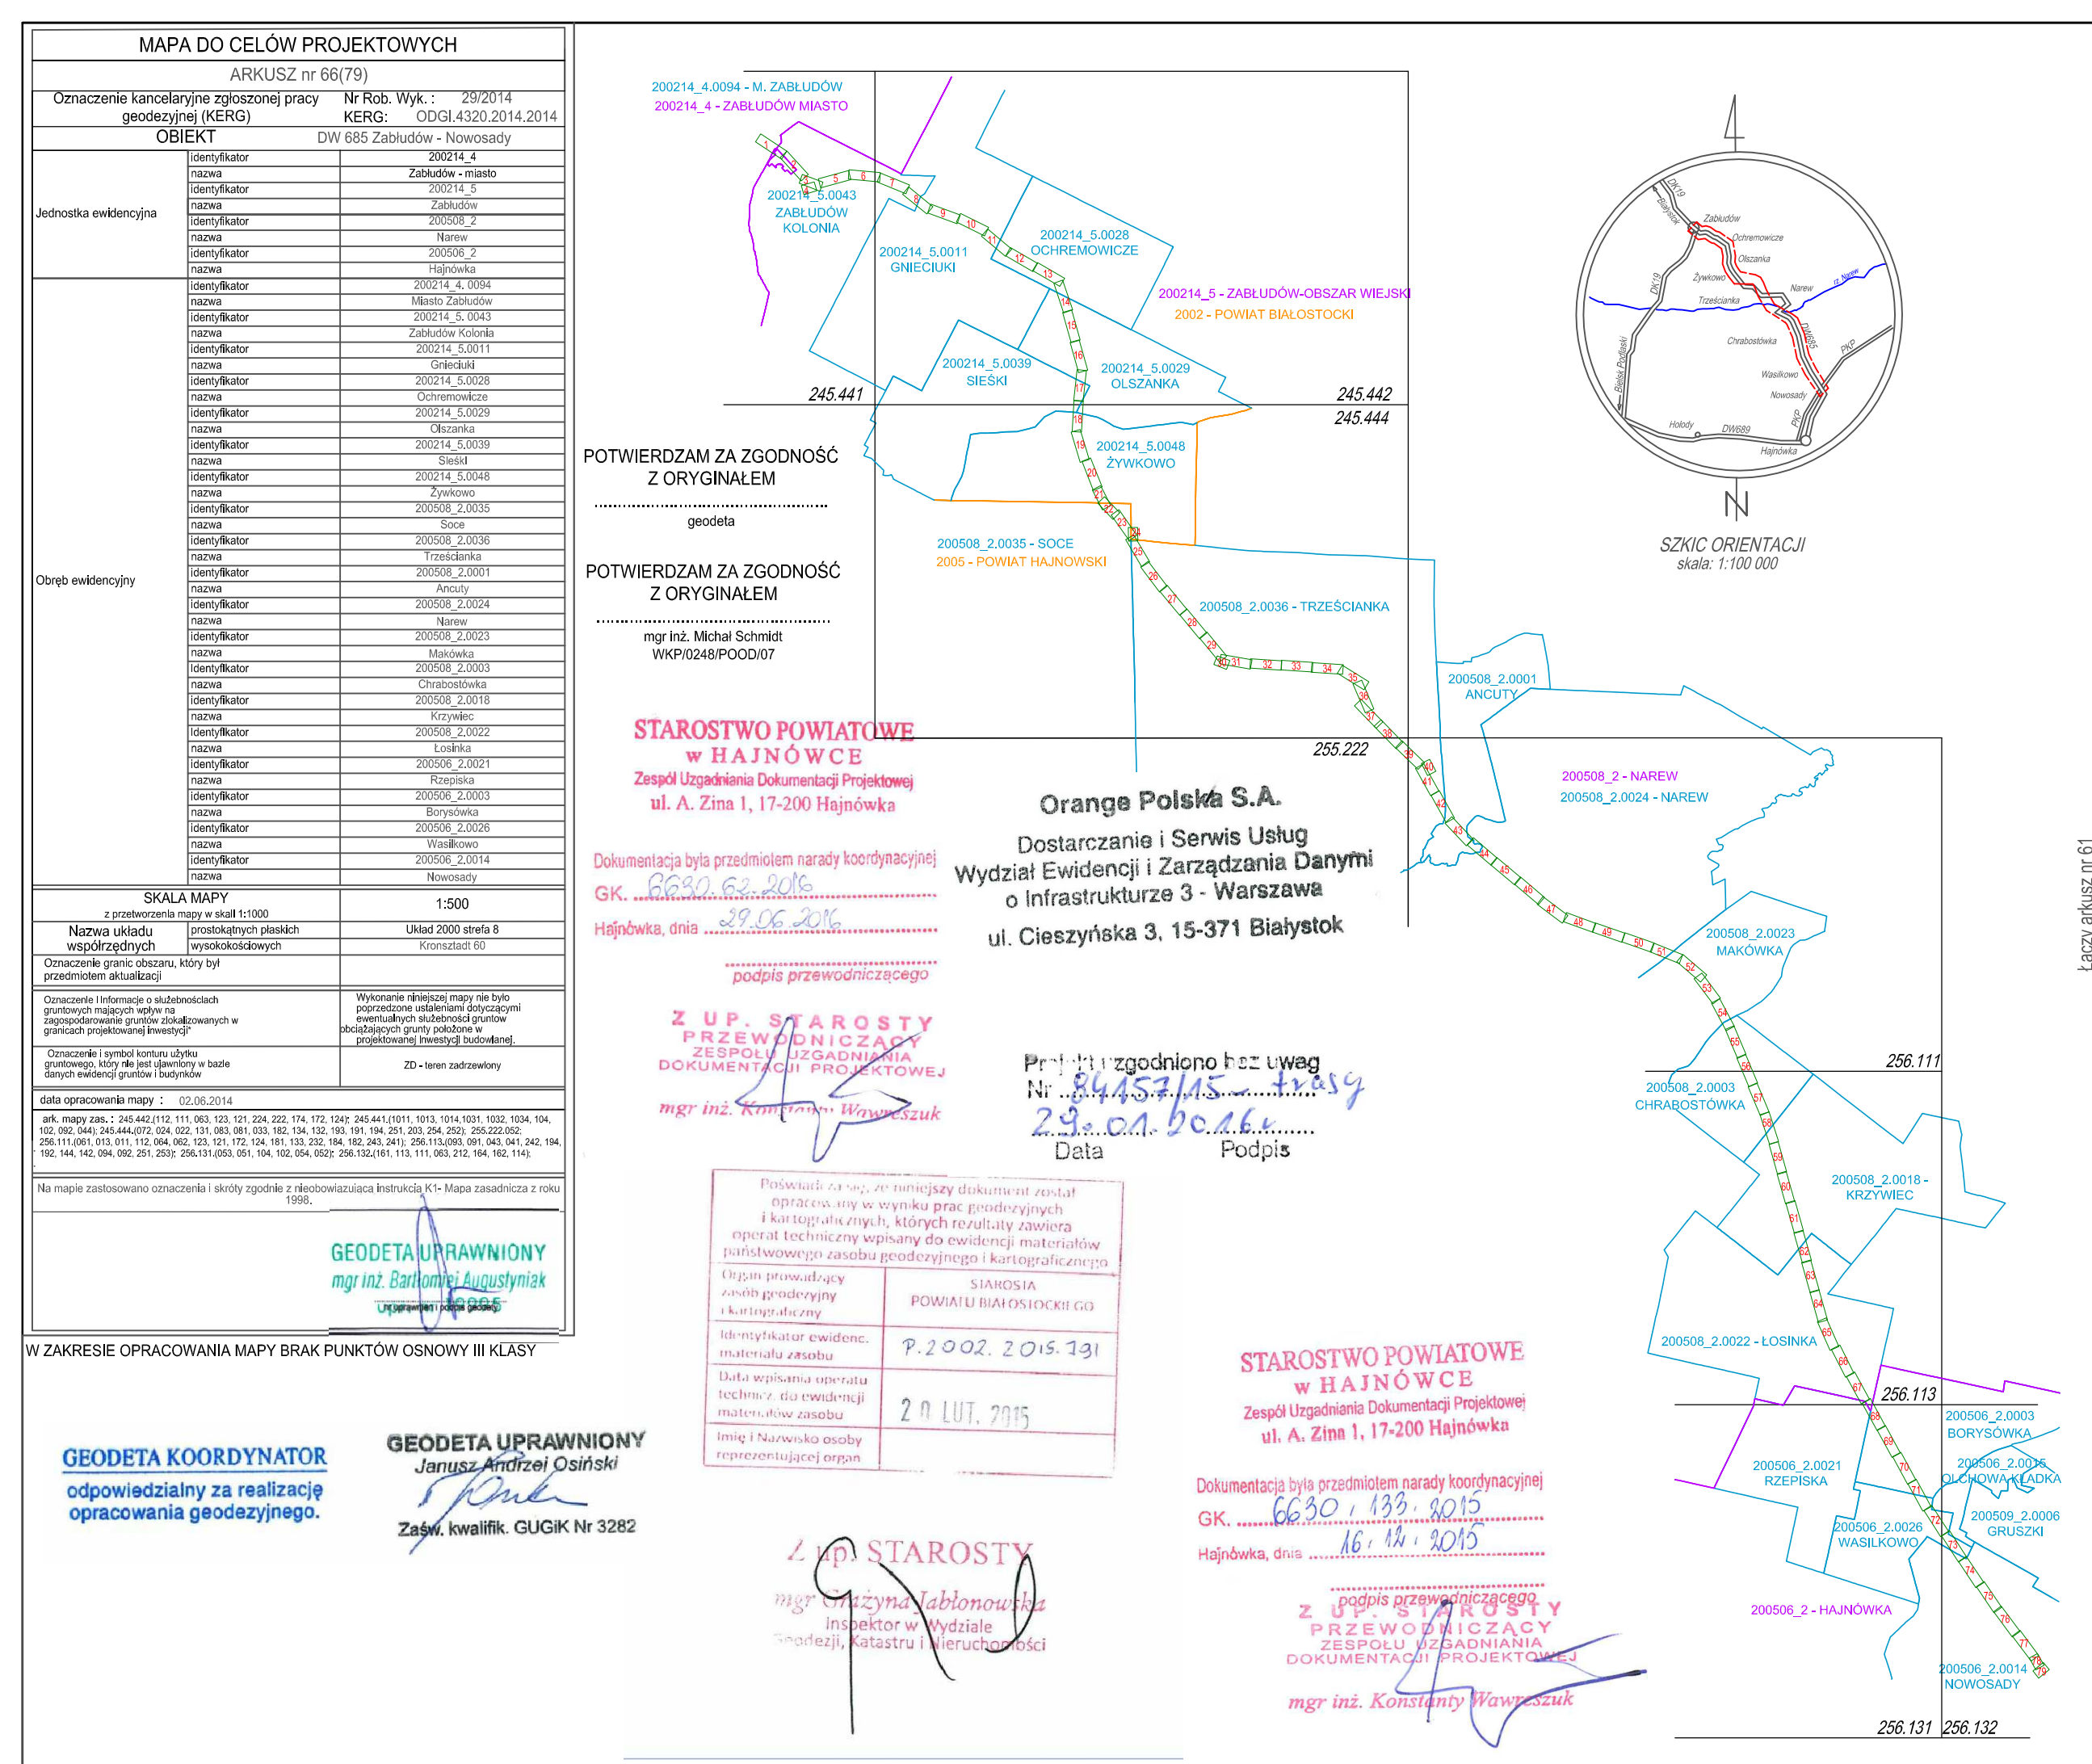 MAPA DO CELÓW PROJEKTOWYCH
ARKUSZ nr 66(79)
Oznaczenie kancelaryjne zgłoszonej pracy geodezyjnej (KERG)
Nr Rob. Wyk. : 29/2014
KERG: ODGI.4320.2014.2014
OBIEKT DW 685 Zabłudów - Nowosady
Jednostka ewidencyjna
identyfikator 200214_4
nazwa Zabłudów - miasto
identyfikator 200214_5
nazwa Zabłudów
identyfikator 200508_2
nazwa Narew
identyfikator 200506_2
nazwa Hajnówka
Obręb ewidencyjny
identyfikator 200214_4. 0094
nazwa Miasto Zabłudów
identyfikator 200214_5. 0043
nazwa Zabłudów Kolonia
identyfikator 200214_5.0011
nazwa Gnieciuki
identyfikator 200214_5.0028
nazwa Ochremowicze
identyfikator 200214_5.0029
nazwa Olszanka
identyfikator 200214_5.0039
nazwa Sieśki
identyfikator 200214_5.0048
nazwa Żywkowo
identyfikator 200508_2.0035
nazwa Soce
identyfikator 200508_2.0036
nazwa Trześcianka
identyfikator 200508_2.0001
nazwa Ancuty
identyfikator 200508_2.0024
nazwa Narew
identyfikator 200508_2.0023
nazwa Makówka
identyfikator 200508_2.0003
nazwa Chrabostówka
identyfikator 200508_2.0018
nazwa Krzywiec
identyfikator 200508_2.0022
nazwa Łosinka
identyfikator 200506_2.0021
nazwa Rzepiska
identyfikator 200506_2.0003
nazwa Borysówka
identyfikator 200506_2.0026
nazwa Wasilkowo
identyfikator 200506_2.0014
nazwa Nowosady
SKALA MAPY
z przetworzenia mapy w skali 1:1000
1:500
Nazwa układu współrzędnych
prostokątnych płaskich Układ 2000 strefa 8
wysokokościowych Kronsztadt 60
Oznaczenie granic obszaru, który był
przedmiotem aktualizacji
Oznaczenie i Informacje o służebnościach
gruntowych mających wpływ na
zagospodarowanie gruntów zlokalizowanych w
granicach projektowanej inwestycji*
Wykonanie niniejszej mapy nie było
poprzedzone ustaleniami dotyczącymi
ewentualnych służebności gruntow
obciążających grunty położone w
projektowanej inwestycji budowlanej.
Oznaczenie i symbol konturu użytku
gruntowego, który nie jest ujawniony w bazie
danych ewidencji gruntów i budynków
ZD - teren zadrzewiony
data opracowania mapy : 02.06.2014
ark. mapy zas. : 245.442.(112, 111, 063, 123, 121, 224, 222, 174, 172, 124); 245.441.(1011, 1013, 1014,1031, 1032, 1034, 104,
102, 092, 044); 245.444.(072, 024, 022, 131, 083, 081, 033, 182, 134, 132, 193, 191, 194, 251, 203, 254, 252); 255.222.052;
256.111.(061, 013, 011, 112, 064, 062, 123, 121, 172, 124, 181, 133, 232, 184, 182, 243, 241); 256.113.(093, 091, 043, 041, 242, 194,
192, 144, 142, 094, 092, 251, 253); 256.131.(053, 051, 104, 102, 054, 052); 256.132.(161, 113, 111, 063, 212, 164, 162, 114);
Na mapie zastosowano oznaczenia i skróty zgodnie z nieobowiązująca instrukcja K1- Mapa zasadnicza z roku
1998.
GEODETA UPRAWNIONY
mgr inż. Bartłomiej Augustyniak
nr uprawnień i podpis geodety
W ZAKRESIE OPRACOWANIA MAPY BRAK PUNKTÓW OSNOWY III KLASY
GEODETA KOORDYNATOR
odpowiedzialny za realizację
opracowania geodezyjnego.
GEODETA UPRAWNIONY
Janusz Andrzej Osiński
Zaśw. kwalifik. GUGiK Nr 3282
POTWIERDZAM ZA ZGODNOŚĆ
Z ORYGINAŁEM
geodeta
POTWIERDZAM ZA ZGODNOŚĆ
Z ORYGINAŁEM
mgr inż. Michał Schmidt
WKP/0248/POOD/07
STAROSTWO POWIATOWE
w HAJNÓWCE
Zespół Uzgadniania Dokumentacji Projektowej
ul. A. Zina 1, 17-200 Hajnówka
Dokumentacja była przedmiotem narady koordynacyjnej
GK. 6630.62.2016
Hajnówka, dnia 29.06.2016
podpis przewodniczącego
Z UP. STAROSTY
PRZEWODNICZĄCY
ZESPOŁU UZGADNIANIA
DOKUMENTACJI PROJEKTOWEJ
mgr inż. Konstanty Wawreszuk
Orange Polska S.A.
Dostarczanie i Serwis Usług
Wydział Ewidencji i Zarządzania Danymi
o Infrastrukturze 3 - Warszawa
ul. Cieszyńska 3, 15-371 Białystok
Projekt uzgodniono bez uwag
Nr 84157/15 - trasy
29.01.2016r
Data Podpis
Poświadcza się, że niniejszy dokument został
opracowany w wyniku prac geodezyjnych
i kartograficznych, których rezultaty zawiera
operat techniczny wpisany do ewidencji materiałów
państwowego zasobu geodezyjnego i kartograficznego
Organ prowadzący
zasób geodezyjny
i kartograficzny
STAROSTA
POWIATU BIAŁOSTOCKIEGO
Identyfikator ewidenc.
materiału zasobu
P.2002.2015.191
Data wpisania operatu
technicz. do ewidencji
materiałów zasobu
20 LUT. 2015
Imię i Nazwisko osoby
reprezentującej organ
Z up. STAROSTY
mgr Grażyna Jabłonowska
Inspektor w Wydziale
Geodezji, Katastru i Nieruchomości
STAROSTWO POWIATOWE
w HAJNÓWCE
Zespół Uzgadniania Dokumentacji Projektowej
ul. A. Zina 1, 17-200 Hajnówka
Dokumentacja była przedmiotem narady koordynacyjnej
GK. 6630.133.2015
Hajnówka, dnia 16.12.2015
podpis przewodniczącego
Z UP. STAROSTY
PRZEWODNICZĄCY
ZESPOŁU UZGADNIANIA
DOKUMENTACJI PROJEKTOWEJ
mgr inż. Konstanty Wawreszuk
200214_4.0094 - M. ZABŁUDÓW
200214_4 - ZABŁUDÓW MIASTO
200214_5.0043
ZABŁUDÓW
KOLONIA
200214_5.0011
GNIECIUKI
200214_5.0028
OCHREMOWICZE
200214_5 - ZABŁUDÓW-OBSZAR WIEJSKI
2002 - POWIAT BIAŁOSTOCKI
200214_5.0039
SIEŚKI
200214_5.0029
OLSZANKA
245.441
245.442
245.444
200214_5.0048
ŻYWKOWO
200508_2.0035 - SOCE
2005 - POWIAT HAJNOWSKI
200508_2.0036 - TRZEŚCIANKA
200508_2.0001
ANCUTY
255.222
200508_2 - NAREW
200508_2.0024 - NAREW
200508_2.0023
MAKÓWKA
256.111
200508_2.0003
CHRABOSTÓWKA
200508_2.0018 -
KRZYWIEC
200508_2.0022 - ŁOSINKA
256.113
200506_2.0003
BORYSÓWKA
200506_2.0021
RZEPISKA
200506_2.0015
OLCHOWA KŁADKA
200509_2.0006
GRUSZKI
200506_2.0026
WASILKOWO
200506_2 - HAJNÓWKA
200506_2.0014
NOWOSADY
256.131
256.132
1 2 3 4 5 6 7 8 9 10 11 12 13 14 15 16 17 18 19 20 21 22 23 24 25 26 27 28 29 30 31 32 33 34 35 36 37 38 39 40 41 42 43 44 45 46 47 48 49 50 51 52 53 54 55 56 57 58 59 60 61 62 63 64 65 66 67 68 69 70 71 72 73 74 75 76 77 78 79
DK19
Białystok
Zabłudów
Ochremowicze
Olszanka
Żywkowo
Narew
rz. Narew
Trześcianka
DK19
Chrabostówka
DW685
PKP
Wasilkowo
Nowosady
Bielsk Podlaski
Hołody
DW689
PKP
Hajnówka
N
SZKIC ORIENTACJI
skala: 1:100 000
Łączy arkusz nr 61